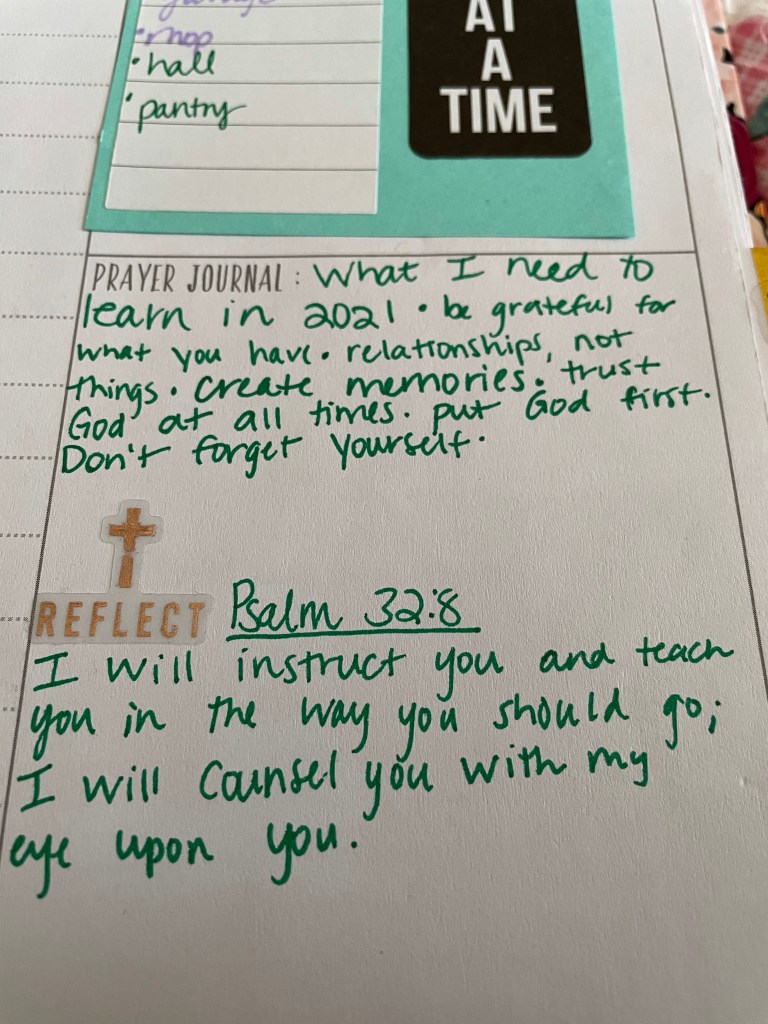 • mop
• hall
• pantry
AT
A
TIME
PRAYER JOURNAL : What I need to
learn in 2021 • be grateful for
what you have • relationships, not
things • create memories • trust
God at all times • put God first •
Don't forget yourself •
REFLECT
Psalm 32:8
I will instruct you and teach
you in the way you should go;
I will counsel you with my
eye upon you.